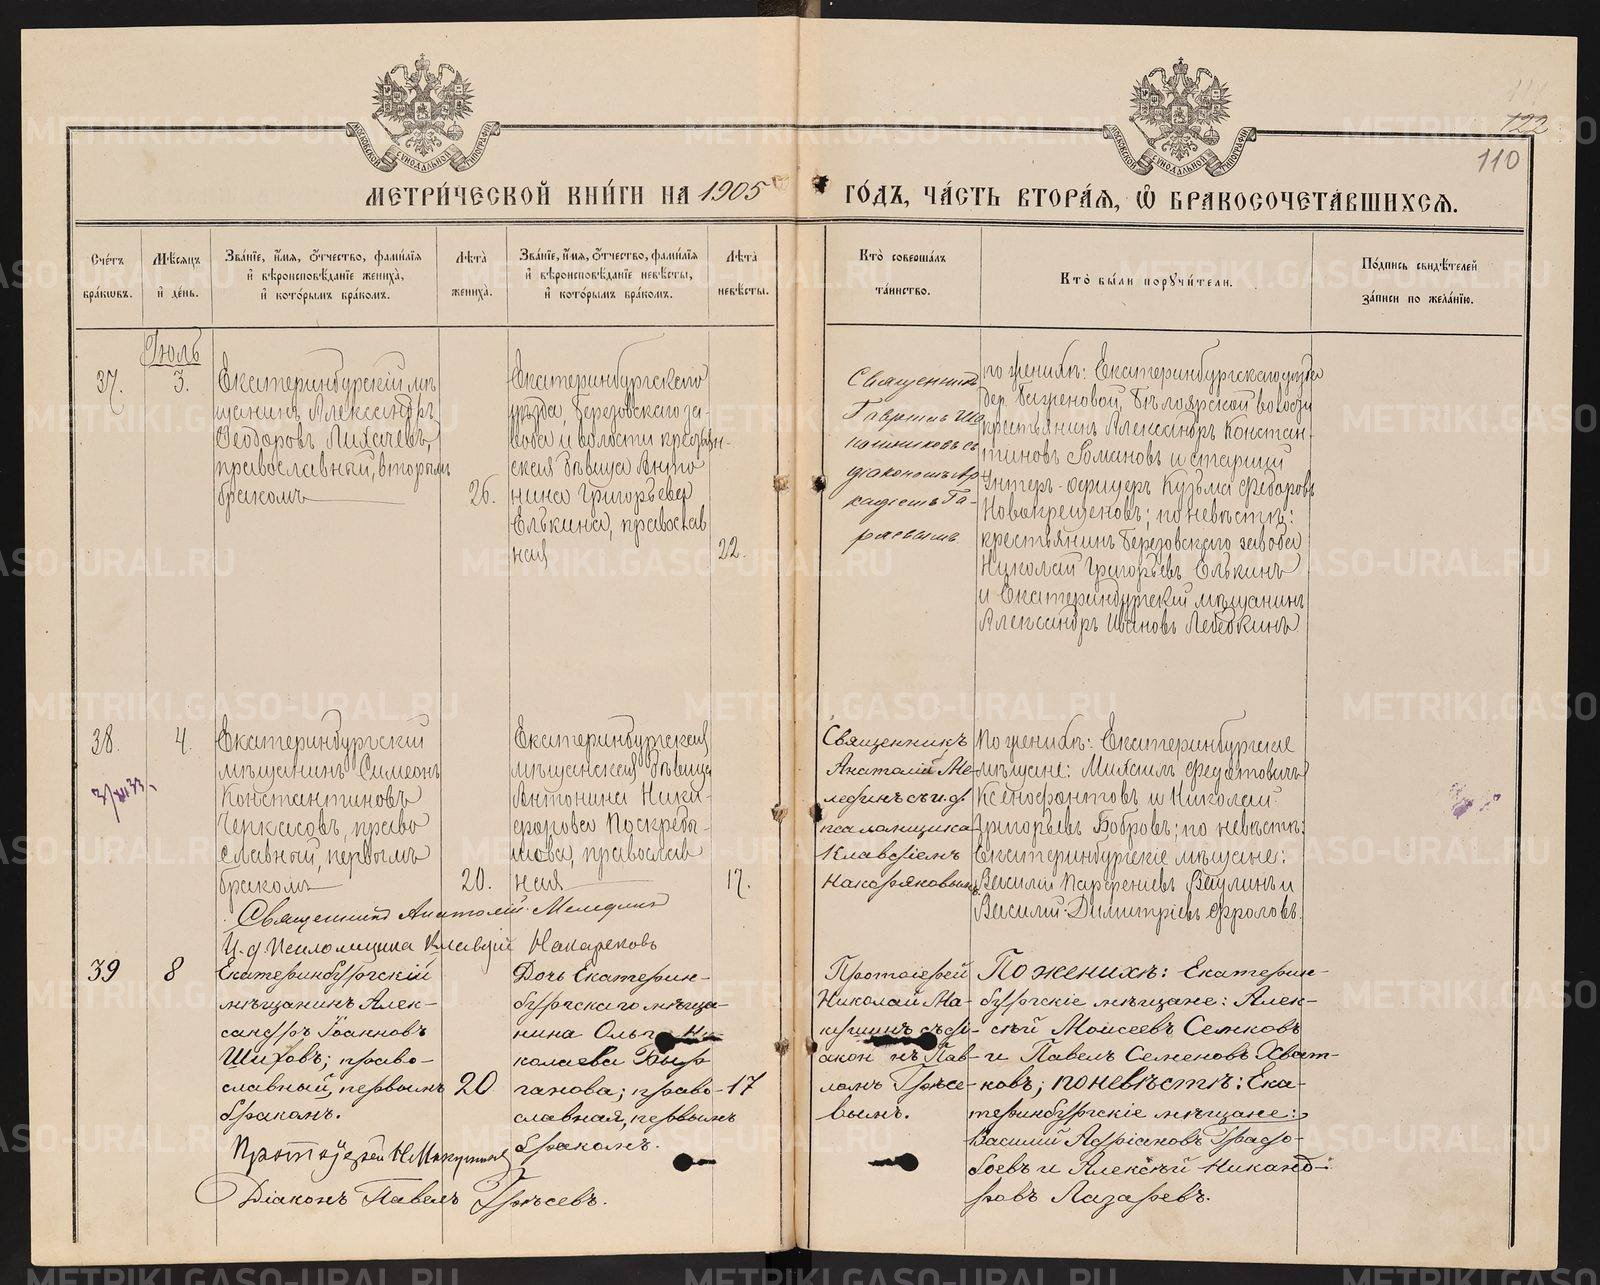 122
110
МЕТРИ́ЧЕСКОЙ КНИ́ГИ НА 1905
ГО́ДЪ, ЧА́СТЬ ВТОРА́Я, Ѽ БРАКОСОЧЕТА́ВШИХСЯ.
Сче́тъ бра́кωвъ.
Мѣ́сяцъ и҆ де́нь.
Зва́нїе, и҆́мя, ѻ҆́тчество, фами́лїя
и҆ вѣроисповѣ́данїе жениха̀,
и҆ кото́рымъ бра́комъ.
Лѣ́та жениха̀.
Зва́нїе, и҆́мя, ѻ҆́тчество, фами́лїя
и҆ вѣроисповѣ́данїе невѣ́сты,
и҆ кото́рымъ бра́комъ.
Лѣ́та невѣ́сты.
Кто̀ соверша́лъ
та́инство.
Кто̀ бы́ли порꙋчи́тели.
По́дпись свидѣ́телей
за́писи по жела́нїю.
Іюль
37.
3.
Екатеринбургскій мѣ
щанинъ Александръ
Ѳеодоровъ Лихачевъ,
православный, вторымъ
бракомъ
26.
Екатеринбургскаго
уѣзда, Березовскаго за-
вода и волости крестьян-
ская дѣвица Анто
нина Григорьева
Елькина, православ
ная
22.
Священникъ
діакономъ Ар
кадіемъ Га-
ряевымъ
по женихѣ: Екатеринбургскаго уѣзда
дер. Багреновой, Бѣлоярской волости
крестьянинъ Александръ Констан-
тиновъ Романовъ и старшій
Унтеръ-офицеръ Кузьма Федоровъ
Новокрещеновъ; по невѣстѣ:
крестьянинъ Березовскаго завода
Николай Григорьевъ Елькинъ
и Екатеринбургскій мѣщанинъ
Александръ Ивановъ Лебедкинъ
38.
4.
Екатеринбургскій
мѣщанинъ Симеонъ
Константиновъ
Черкасовъ, право
славный, первымъ
бракомъ
20.
Екатеринбургская
мѣщанская дѣвица
Антонина Ники-
форова Поскребы-
шова, православ
ная
17.
Священникъ
Анатолій Ме-
лединъ съ и.д.
псаломщика
Клавдіемъ
Накоряковымъ
По женихѣ: Екатеринбургскіе
мѣщане: Михаилъ Федотовичъ
Ксенофонтовъ и Николай
Григорьевъ Бобровъ; по невѣстѣ:
Екатеринбургскіе мѣщане:
Василій Парфеніевъ Ваулинъ и
Василій Димитріевъ Фроловъ.
Священникъ Анатолій Мелединъ
И.д. Псаломщика Клавдій Накаряковъ
39
8
Екатеринбургскій
мѣщанинъ Алек-
сандръ Іоанновъ
Шиховъ; право-
славный, первымъ
бракомъ.
20
Дочь Екатерин-
бургскаго мѣща-
нина Ольга Ни-
колаева Быр
ганова; право-
славная, первымъ
бракомъ.
17
Протоіерей
Николай Ма-
кушинъ съ ді-
акономъ Пав-
ломъ Грѣсе-
вымъ.
По женихѣ: Екатерин-
бургскіе мѣщане: Алек-
сѣй Моисеевъ Семковъ
и Павелъ Семеновъ Хват-
ковъ; по невѣстѣ: Ека-
теринбургскіе мѣщане:
Василій Адріановъ Градо-
боевъ и Алексѣй Никанд-
ровъ Лазаревъ.
Протоіерей Н Макушинъ
Діаконъ Павелъ Грѣсевъ.
METRIKI.GASO-URAL.RU